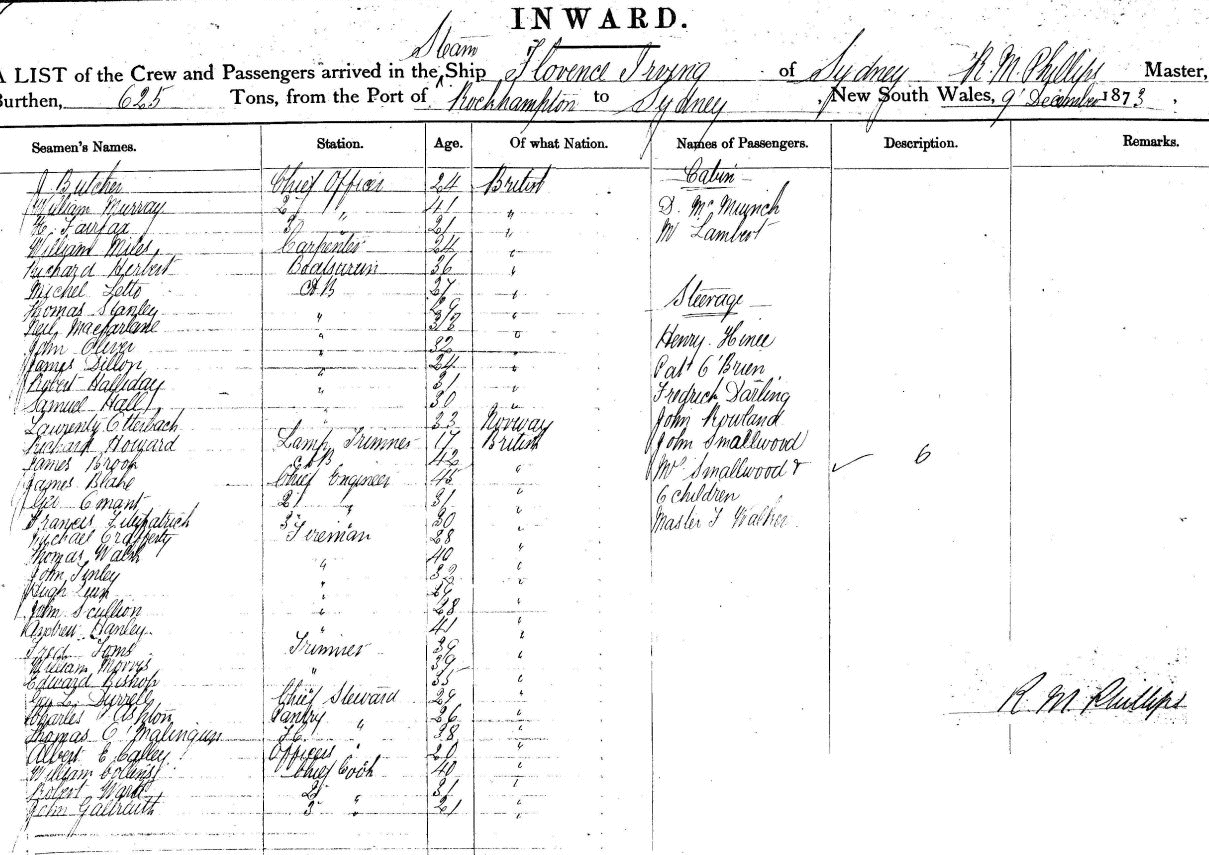 INWARD.
Steam
A LIST of the Crew and Passengers arrived in the Ship Florence Irving of Sydney R. M. Phillips Master,
Burthen, 625 Tons, from the Port of Rockhampton to Sydney, New South Wales, 9 December 1873.
Seamen's Names. Station. Age. Of what Nation. Names of Passengers. Description. Remarks.
J Butcher Chief Officer 24 British
William Murray 2 " 41 "
H. Fairfax 3 " 21 "
William Miles Carpenter 24 "
Richard Herbert Boatswain 36 "
Michel Letto AB 27 "
Thomas Stanley 29 "
Neil Macfarlane " "
John Oliver " 32 "
James Dillon " 24 "
Robert Halliday " 31 "
Samuel Hall 30 "
Otterbach " 33 Norway
Richard Howard Lamp Trimmer 17 British
James Brook AB 42 "
James Blake Chief Engineer 45 "
2 " 31 "
Francis Fitzpatrick 3 " 30 "
Michael Fireman 28 "
Thomas Walsh 40 "
John Finley " 32 "
Hugh " "
John Scullion " 28 "
Andrew Hanley " 41 "
Fred Toms Trimmer 39 "
William Morris 39 "
Edward Bishop " 35 "
Geo L. Durrell Chief Steward 29 "
Charles Ashton Pantry " 26 "
Thomas " "
Albert E. Calley Officers " 20 "
William Collins Chief Cook 40 "
Robert Ward 2 31 "
John Galbraith 3 " 21 "
Cabin
D. Mc
Mr Lambert
Steerage
Henry Hinee
Patt O'Brien
Fredrich Darling
John Rowland
John Smallwood
Mrs Smallwood & 6
6 children
Master Walker
R. M Phillips